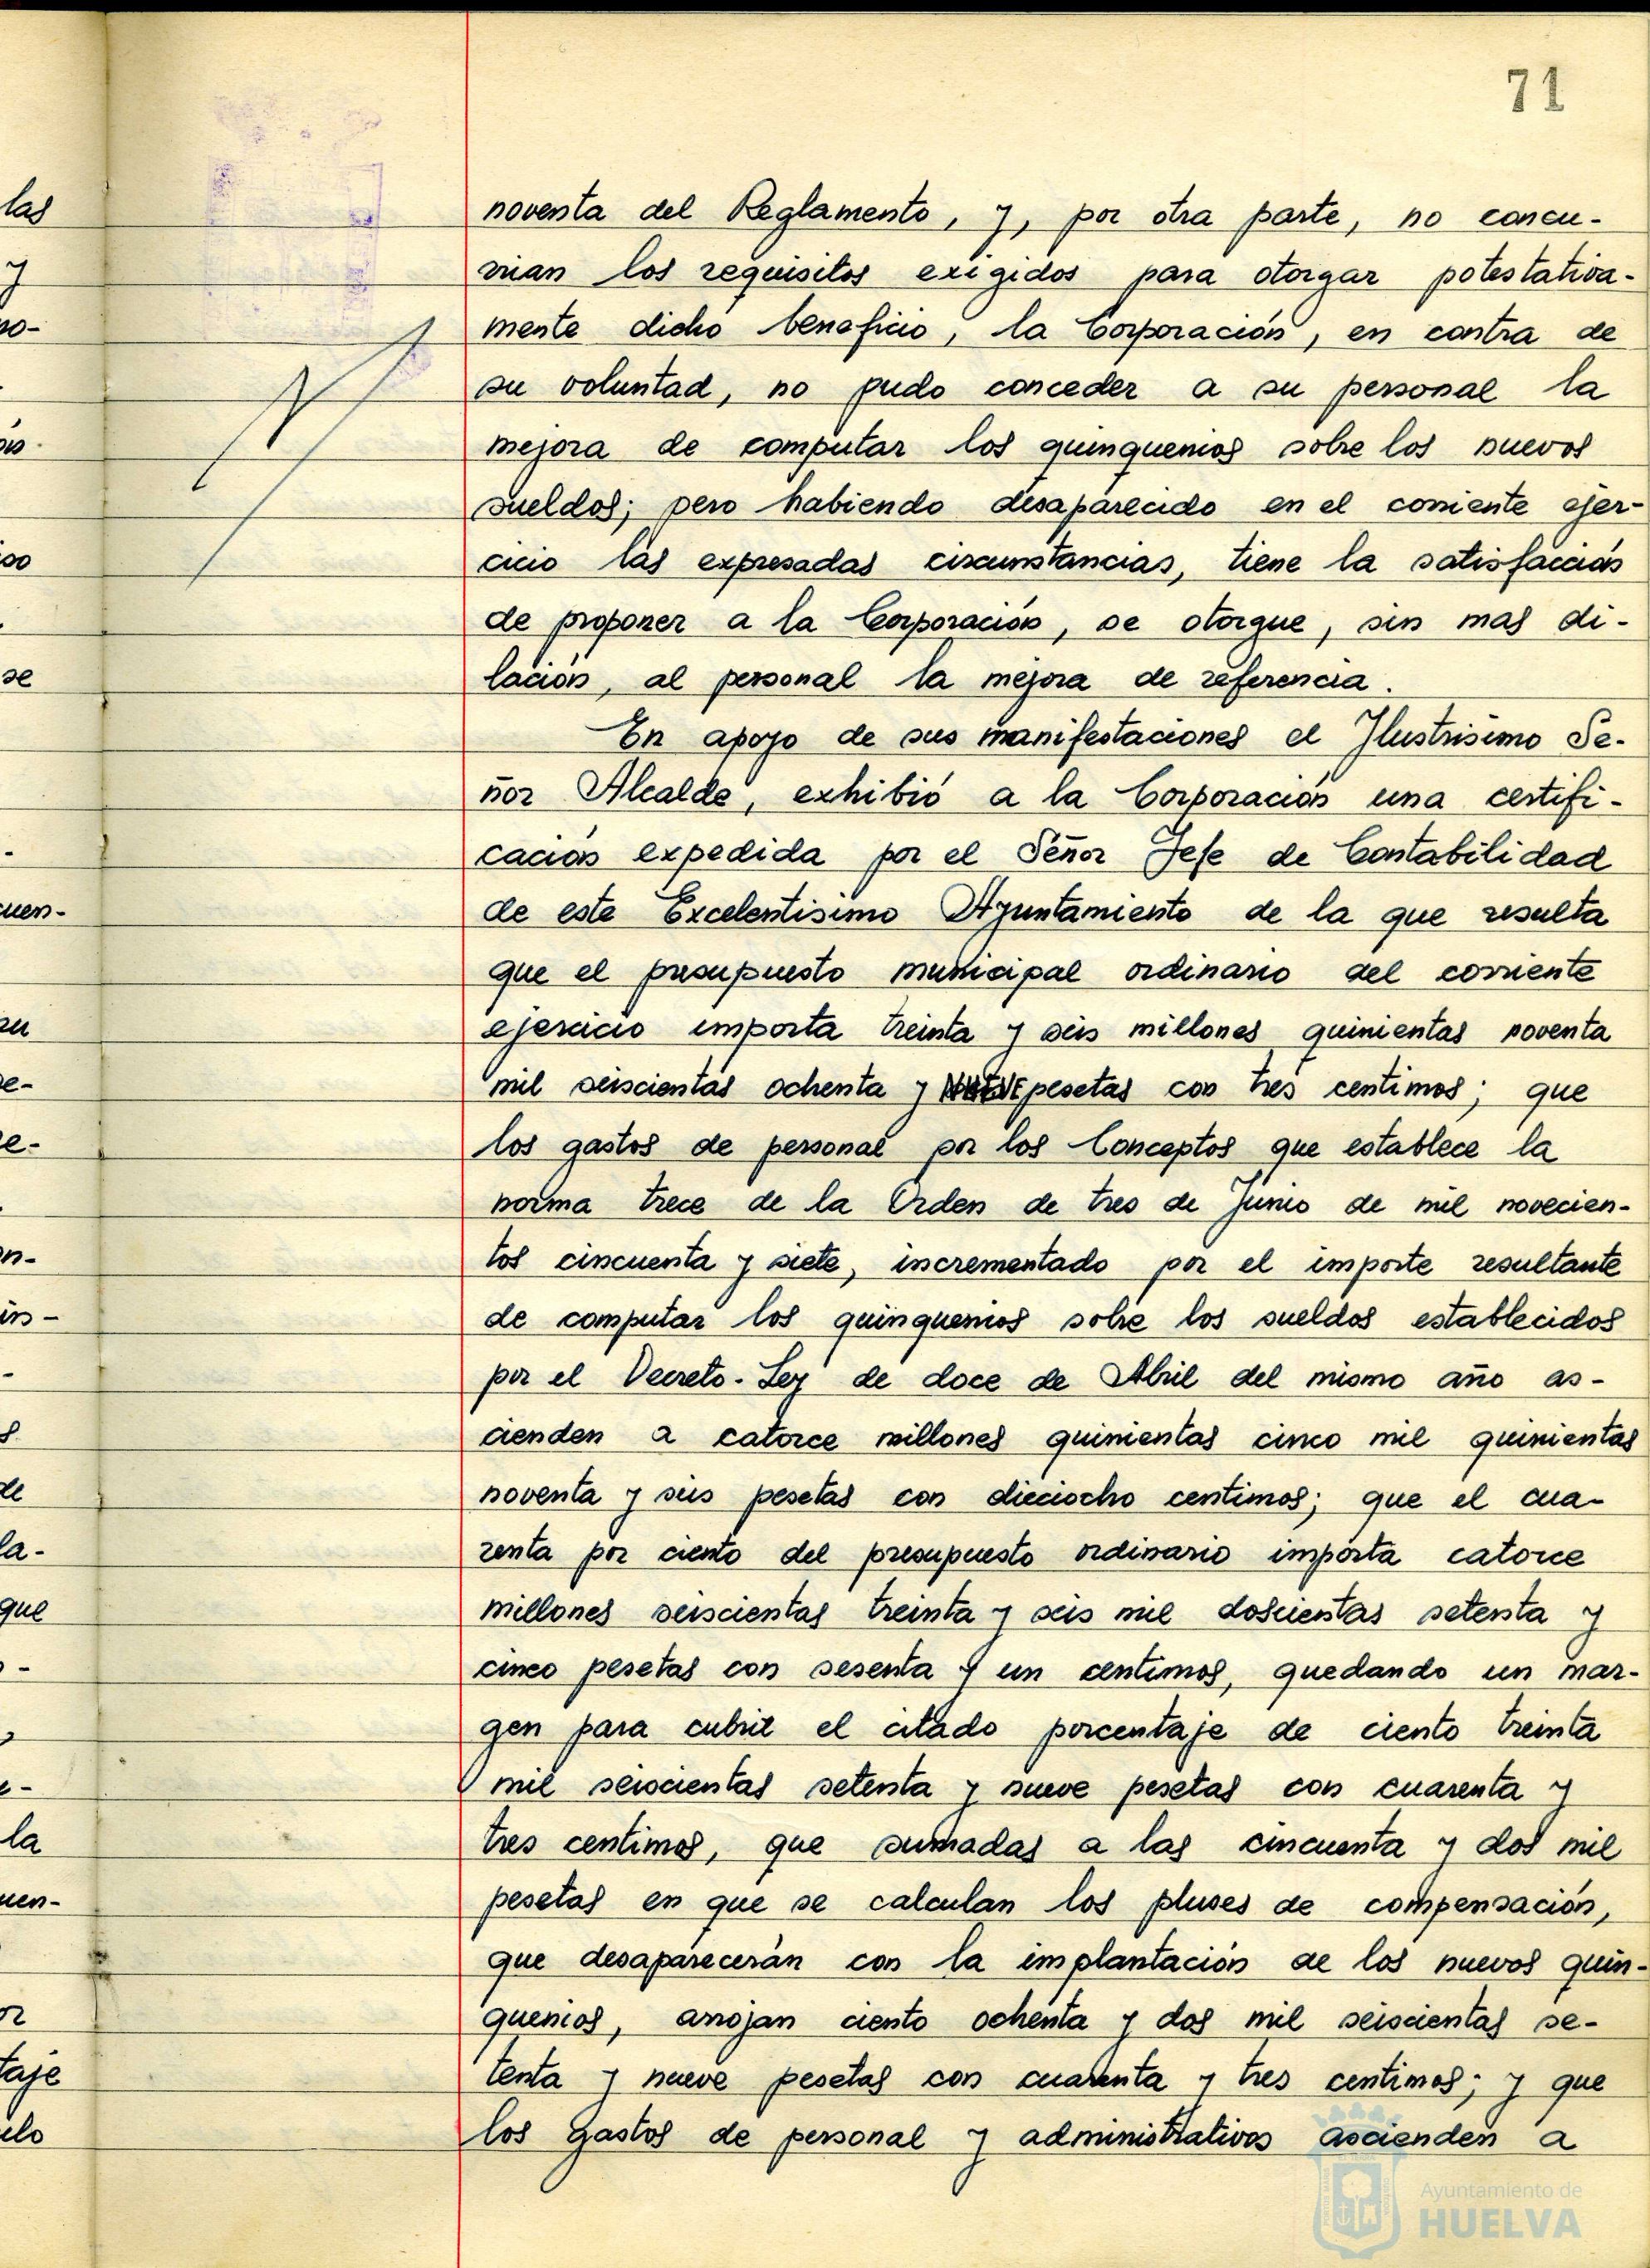 71
noventa del Reglamento, y, por otra parte, no concu-
rrian los requisitos exigidos para otorgar potestativa-
mente dicho beneficio, la Corporación, en contra de
su voluntad, no pudo conceder a su personal la
mejora de computar los quinquenios sobre los nuevos
sueldos; pero habiendo desaparecido en el corriente ejer-
cicio las expresadas circunstancias, tiene la satisfacción
de proponer a la Corporación, se otorgue, sin mas di-
lación, al personal la mejora de referencia.
En apoyo de sus manifestaciones el Ilustrisimo Se-
ñor Alcalde, exhibió a la Corporación una certifi-
cación expedida por el Señor Jefe de Contabilidad
de este Excelentisimo Ayuntamiento de la que resulta
que el presupuesto municipal ordinario del corriente
ejercicio importa treinta y seis millones quinientas noventa
mil seiscientas ochenta y NUEVE pesetas con tres centimos; que
los gastos de personal por los Conceptos que establece la
norma trece de la Orden de tres de Junio de mil novecien-
tos cincuenta y siete, incrementado por el importe resultante
de computar los quinquenios sobre los sueldos establecidos
por el Decreto-Ley de doce de Abril del mismo año as-
cienden a catorce millones quinientas cinco mil quinientas
noventa y seis pesetas con dieciocho centimos; que el cua-
renta por ciento del presupuesto ordinario importa catorce
millones seiscientas treinta y seis mil doscientas setenta y
cinco pesetas con sesenta y un centimos, quedando un mar-
gen para cubrir el citado porcentaje de ciento treinta
mil seiscientas setenta y nueve pesetas con cuarenta y
tres centimos, que sumadas a las cincuenta y dos mil
pesetas en que se calculan los pluses de compensación,
que desaparecerán con la implantación de los nuevos quin-
quenios, arrojan ciento ochenta y dos mil seiscientas se-
tenta y nueve pesetas con cuarenta y tres centimos; y que
los gastos de personal y administrativos ascienden a
las
y
no-
se
cuen-
e-
n-
in-
de
la-
que
la
uen-
or
taje
elo
Ayuntamiento de
HUELVA